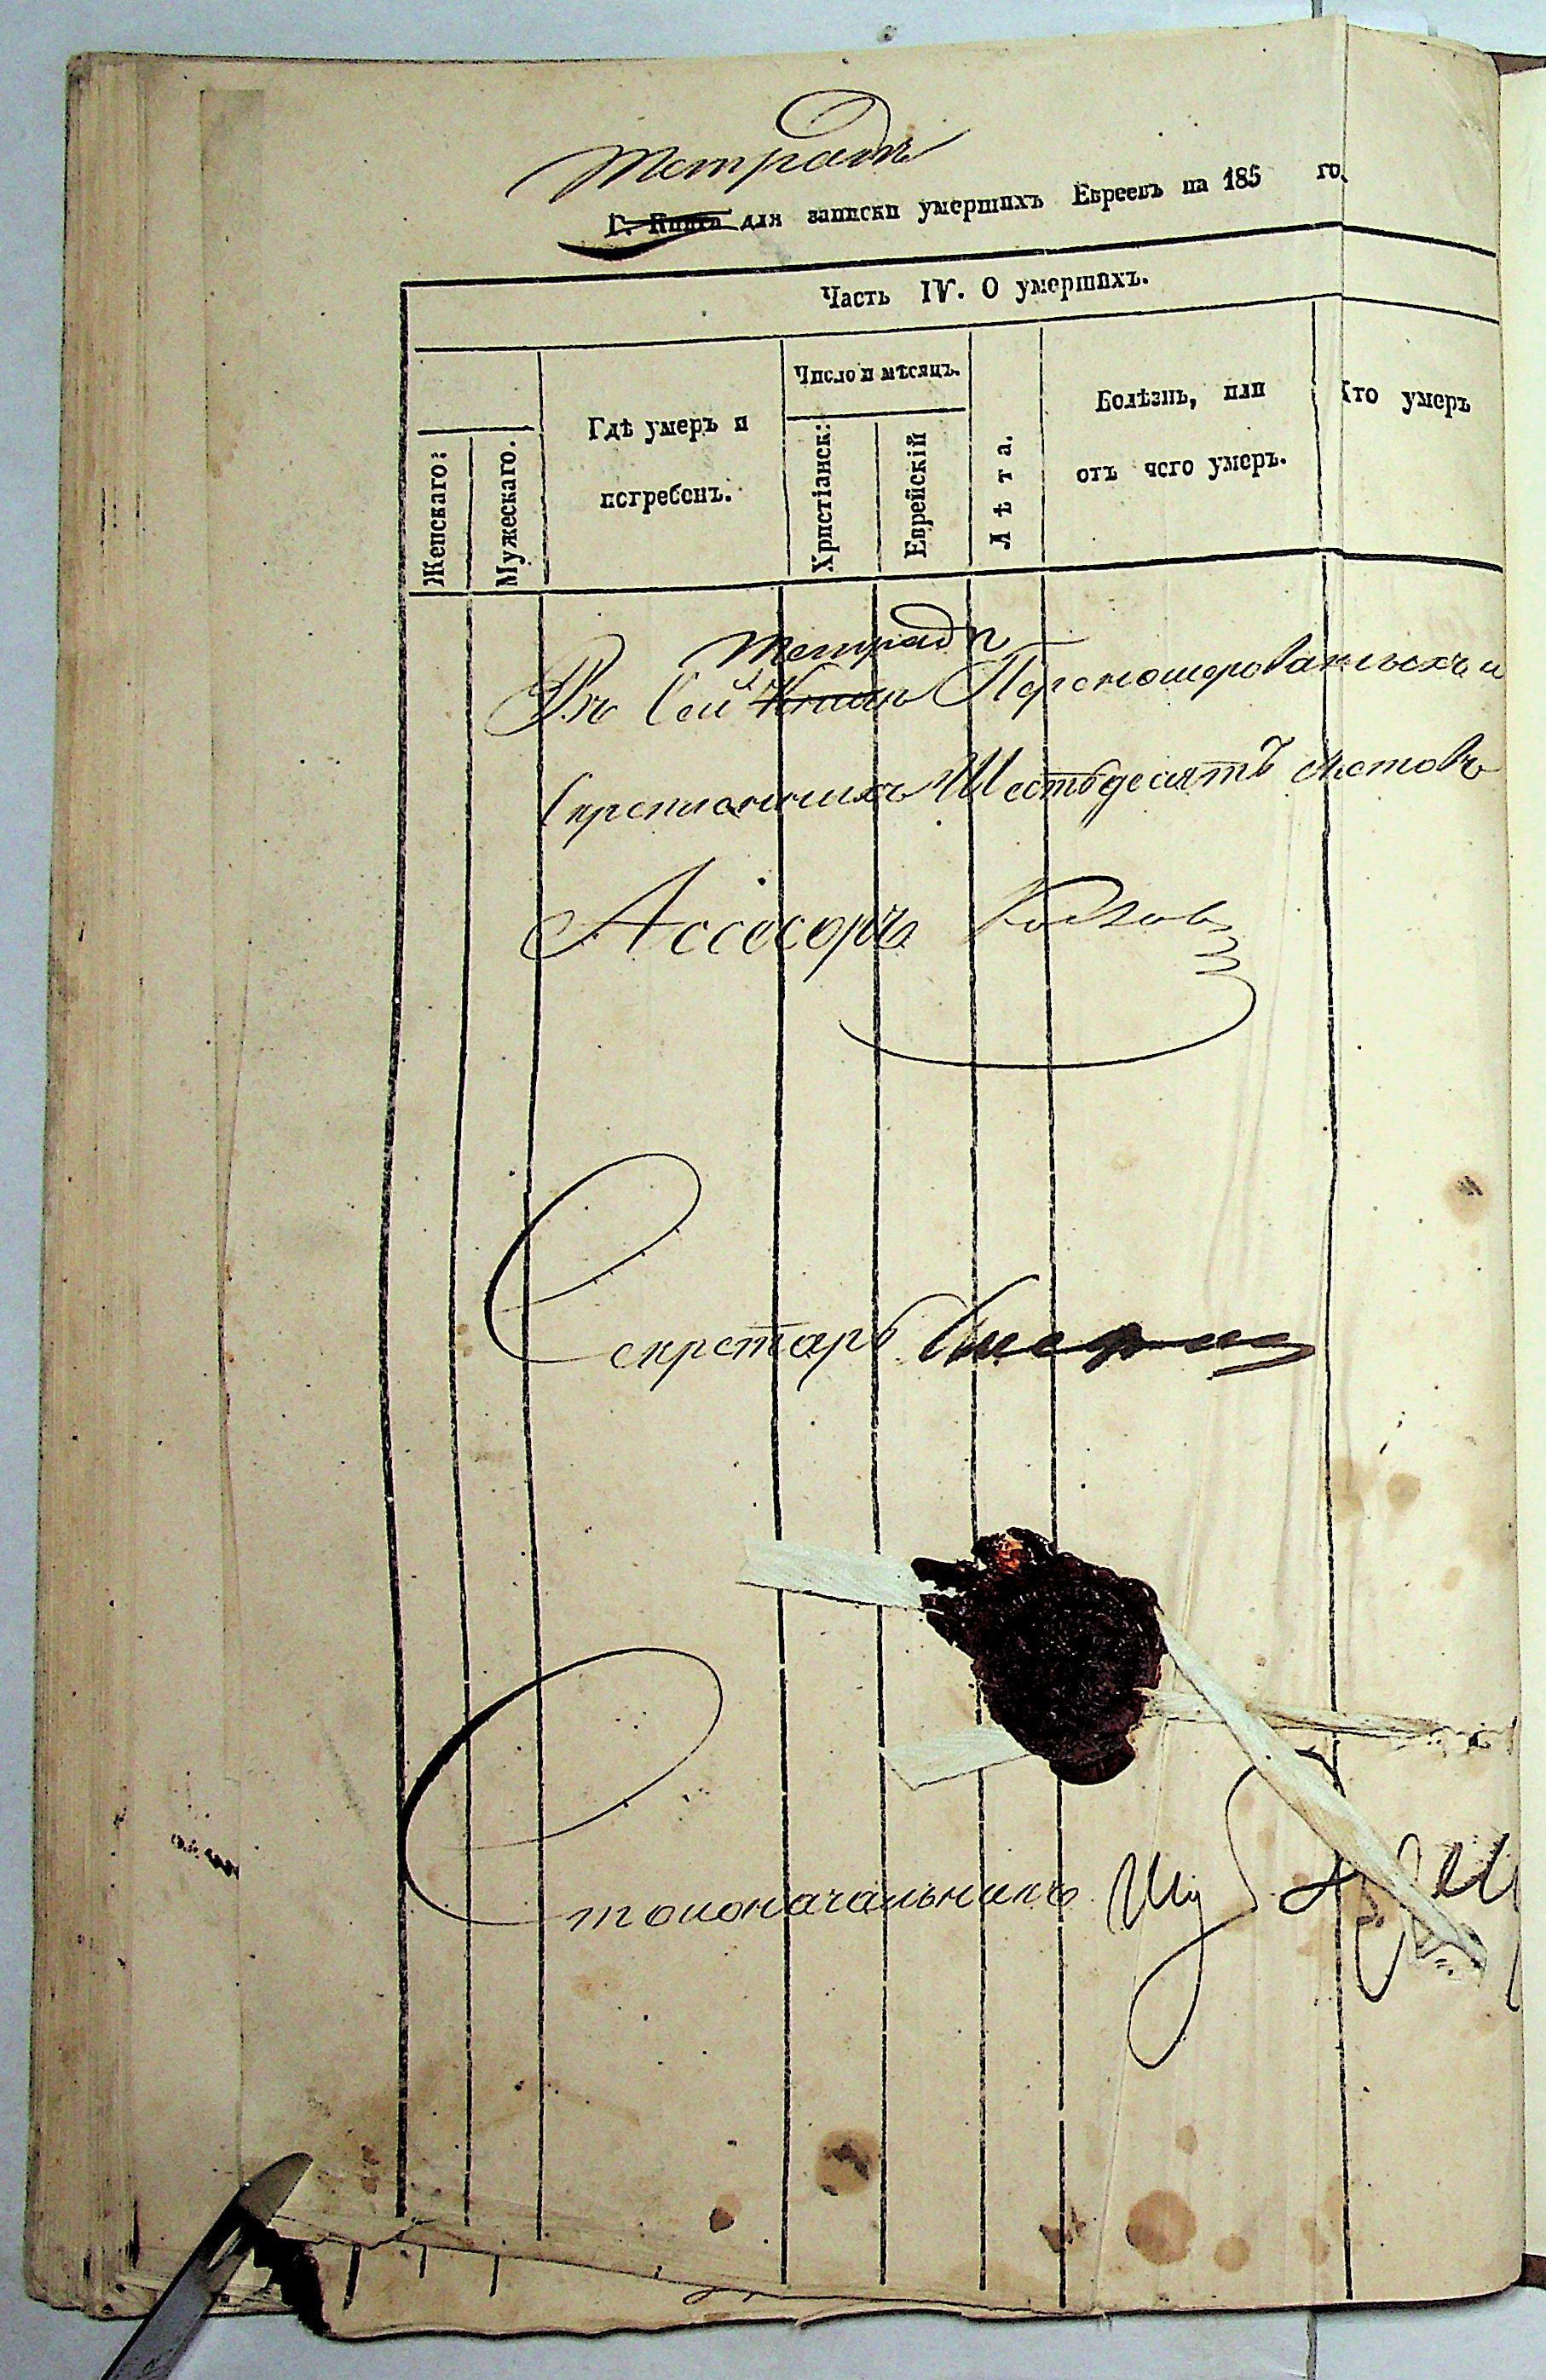 Тетрадь
Г. Книга для записки умершихъ Евреевъ на 185 го
Часть IV. О умершихъ.
Женскаго:
Мужескаго.
Гдѣ умеръ и
погребенъ.
Число и мѣсяцъ.
Христіанск:
Еврейскій
Лѣта.
Болѣзнь, или
отъ чего умеръ.
Кто умеръ
тетради
Въ сей Книгѣ Перенумерованныхъ и
Скрепленныхъ Шестьдесятъ листовъ
Ассесоръ
Секретарь
Столоначальникъ